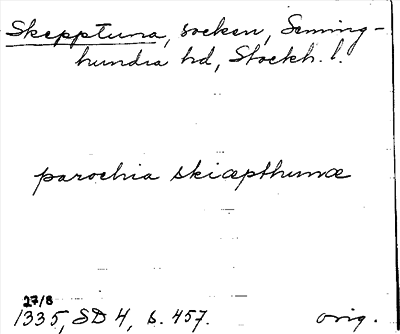 Skepptuna, socken, Seming-
hundra hd, Stockh. l.
parochia skiæpthunæ
27/8
1335, SD 4, s. 457. orig.